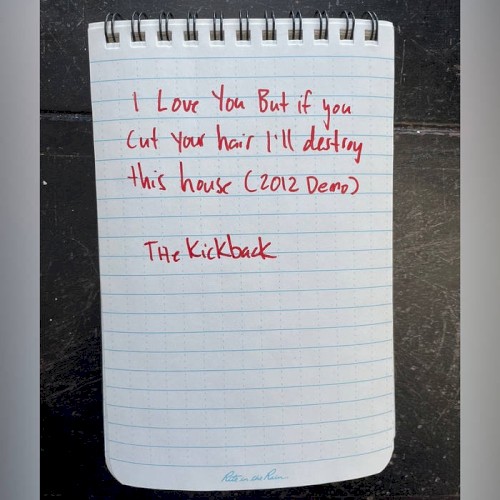 I Love You But if you
Cut Your hair I'll destroy
this house (2012 Demo)
THe Kickback
Rite in the Rain